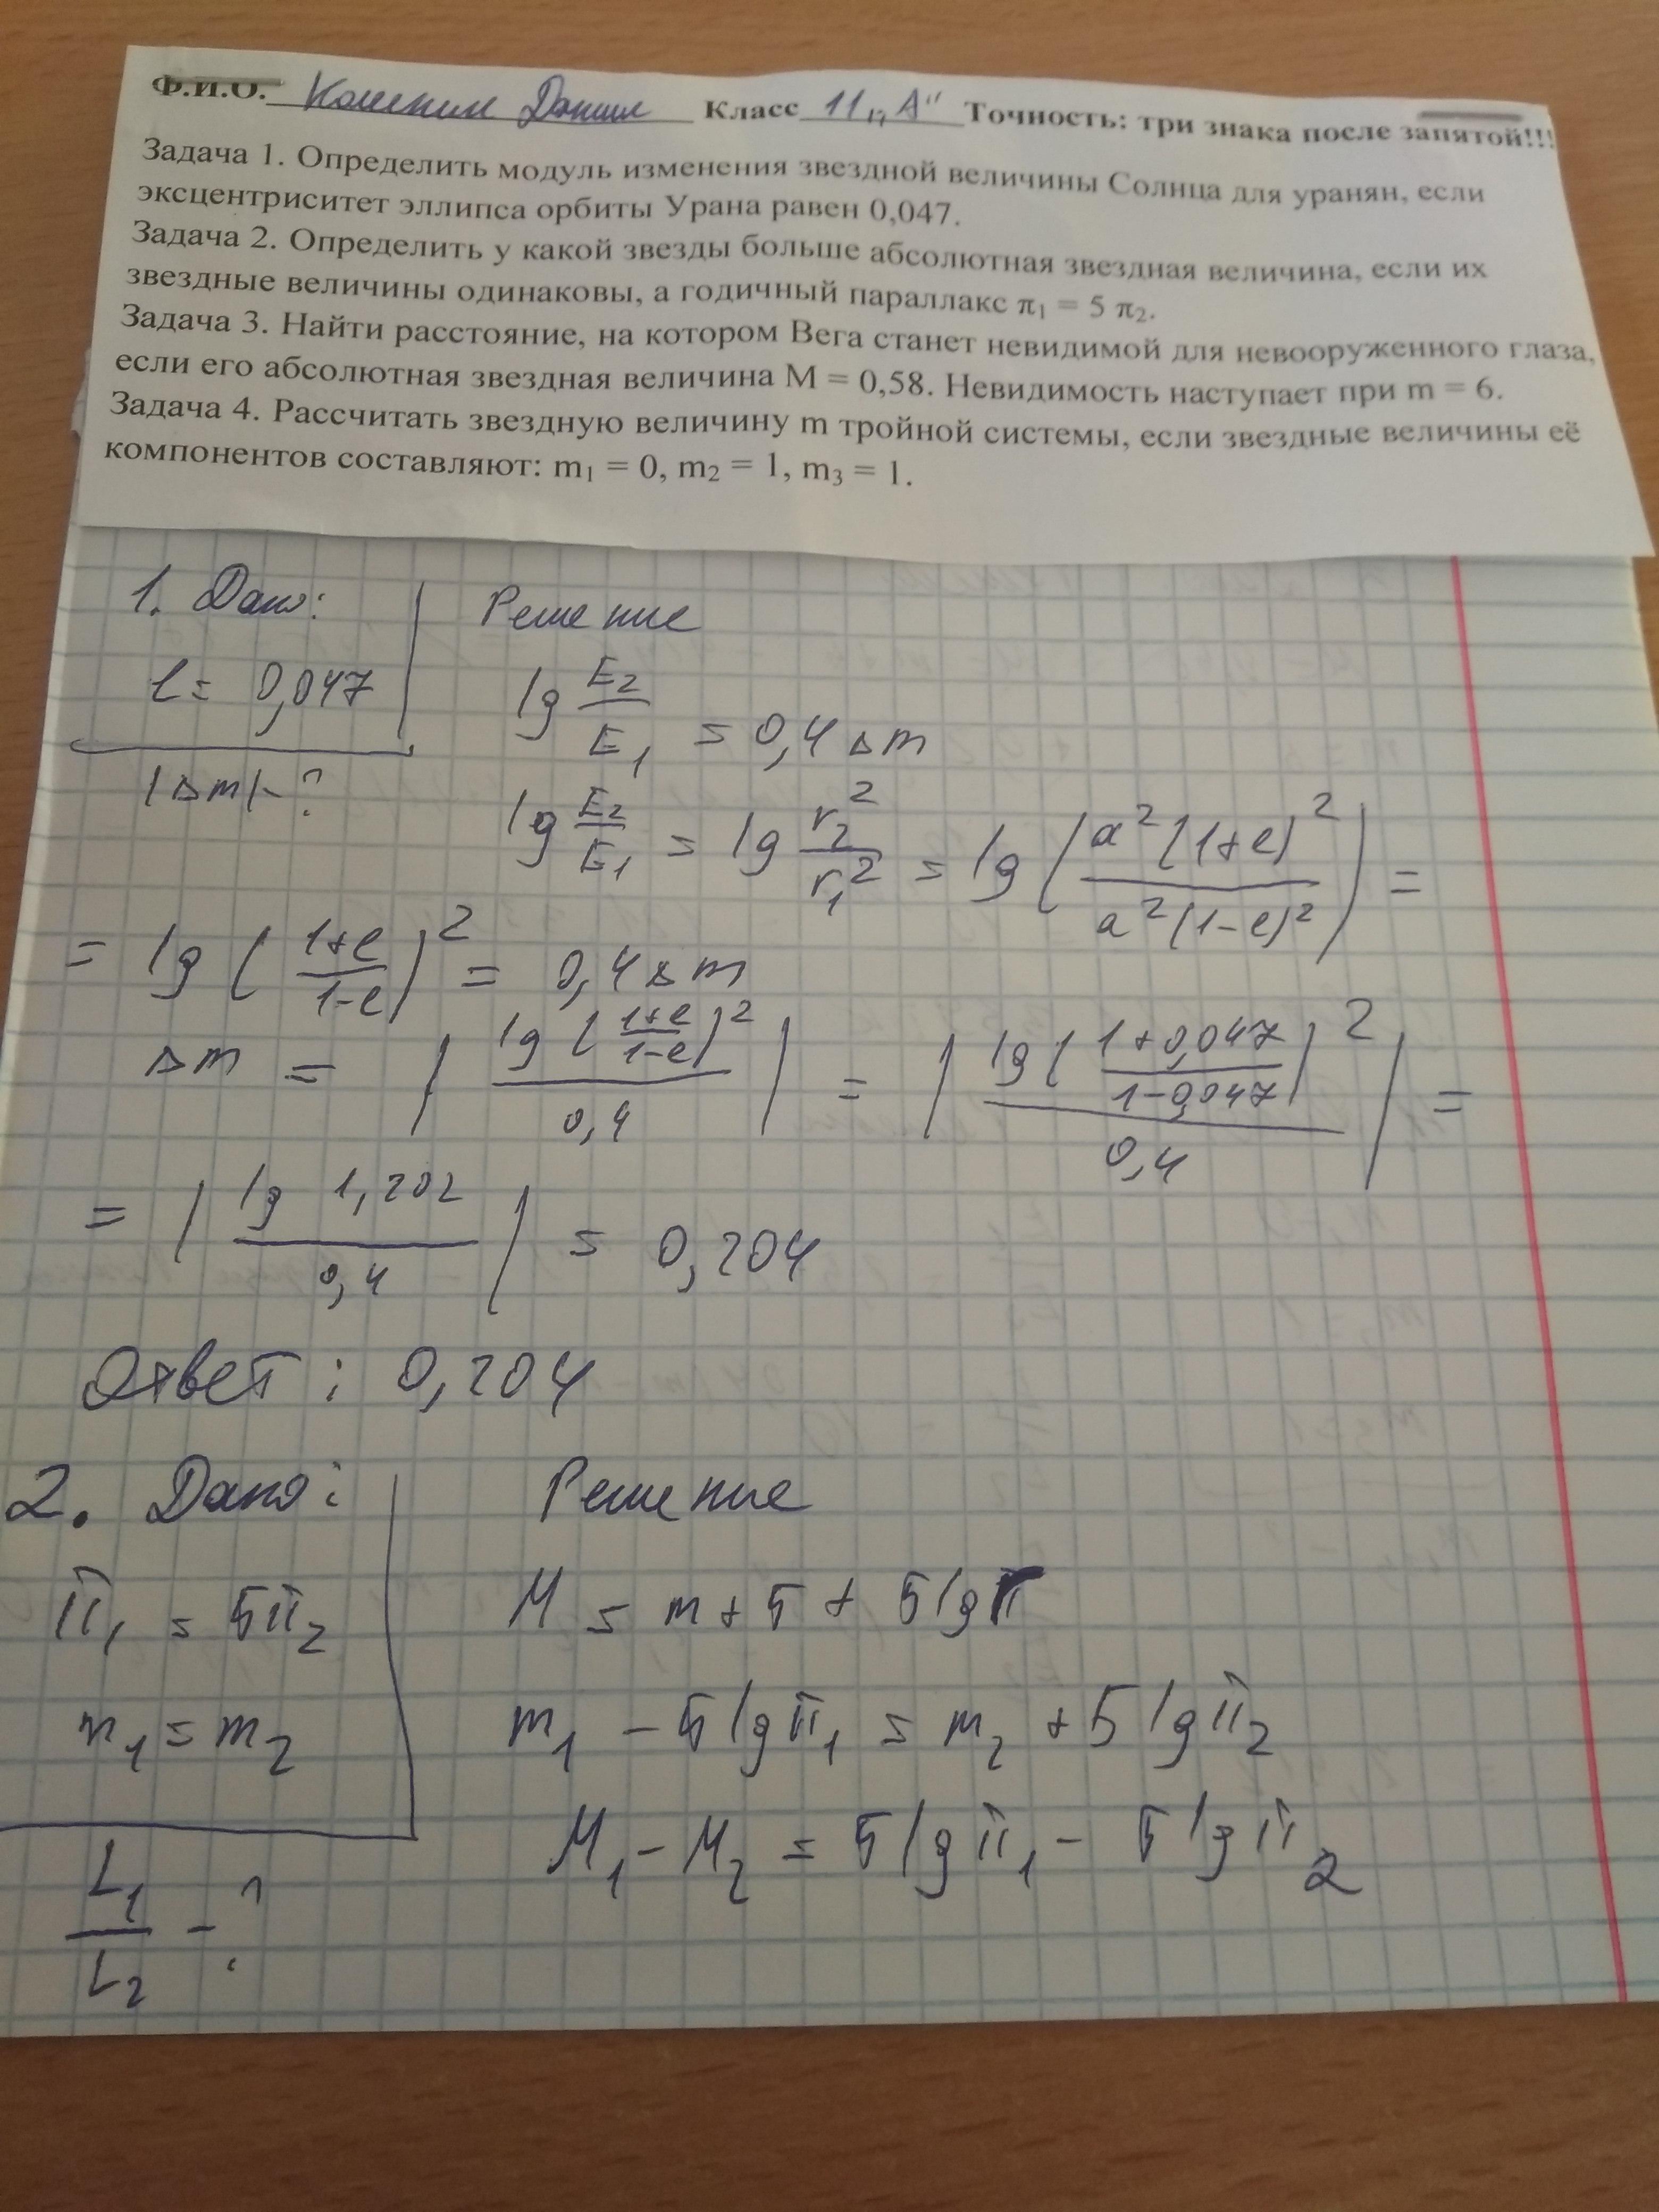 Ф.И.О. Даниил Класс 11 "А" Точность: три знака после запятой!!!
Задача 1. Определить модуль изменения звездной величины Солнца для уранян, если
эксцентриситет эллипса орбиты Урана равен 0,047.
Задача 2. Определить у какой звезды больше абсолютная звездная величина, если их
звездные величины одинаковы, а годичный параллакс π₁ = 5 π₂.
Задача 3. Найти расстояние, на котором Вега станет невидимой для невооруженного глаза,
если его абсолютная звездная величина М = 0,58. Невидимость наступает при m = 6.
Задача 4. Рассчитать звездную величину m тройной системы, если звездные величины её
компонентов составляют: m₁ = 0, m₂ = 1, m₃ = 1.
1. Дано: Решение
e = 0,047 lg E₂/E₁ = 0,4 Δm
|Δm| - ? lg E₂/E₁ = lg r₂²/r₁² = lg (a²(1+e)²/a²(1-e)²) =
= lg (1+e/1-e)² = 0,4 Δm
Δm = |lg (1+e/1-e)²/0,4| = |lg (1+0,047/1-0,047)²/0,4| =
= |lg 1,202/0,4| = 0,204
Ответ: 0,204
2. Дано: Решение
π₁ = 5π₂ M = m + 5 + 5 lg π
m₁ = m₂ m₁ - 5 lg π₁ = m₂ + 5 lg π₂
L₁/L₂ - ? M₁ - M₂ = 5 lg π₁ - 5 lg π₂